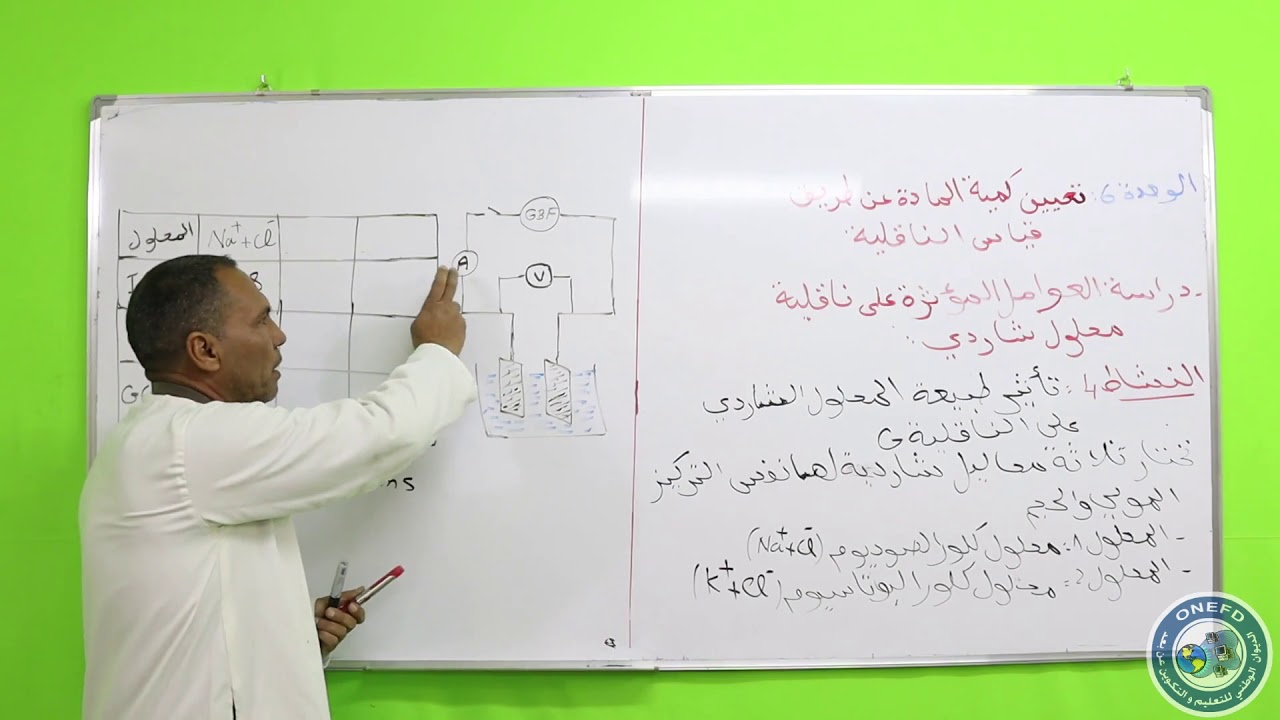 الوحدة 6: تعيين كمية المادة عن طريق
قياس الناقلية
- دراسة العوامل المؤثرة على ناقلية
محلول شاردي:
النشاط 4: تأثير طبيعة المحلول الشاردي
على الناقلية G
نختار ثلاثة محاليل شاردية لها نفس التركيز
المولي والحجم
- المحلول 1: محلول كلور الصوديوم (Na⁺+Cl⁻)
- المحلول 2: محلول كلور البوتاسيوم (K⁺+Cl⁻)
المحلول Na⁺+Cl⁻
I 8
G
GBF
A
V
ONEFD
الديوان الوطني للتعليم و التكوين عن بعد